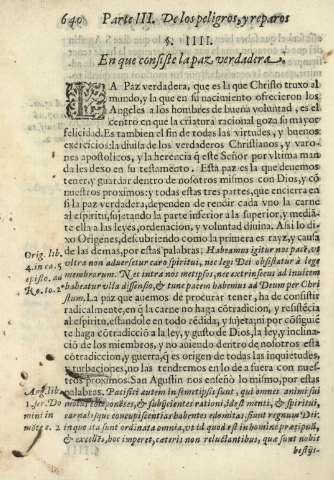 640 Parte III. De los peligros, y reparos
§. IIII.
En que consiste la paz verdadera.
LA Paz verdadera, que es la que Christo truxo al
mundo, y la que en su nacimiento ofrecieron los
Angeles a los hombres de buena voluntad, es el
centro en que la criatura racional goza su mayor
felicidad. Es tambien el fin de todas las virtudes, y buenos
exercicios: la diuisa de los verdaderos Christianos, y varo-
nes apostolicos, y la herencia q̃ este Señor por vltima man
da les dexo en su testamento. Esta paz es la que deuemos
tener, y guardar dentro de nosotros mismos con Dios, y cõ
nuestros proximos: y todas estas tres partes, que encierra en
si la paz verdadera, dependen de rendir cada vno la carne
al espiritu, sujetando la parte inferior a la superior, y mediã-
te ella a las leyes, ordenacion, y voluntad diuina. Assi lo di-
xo Origenes, descubriendo como la primera es rayz, y causa
Orig. lib. de las demas, por estas palabras: Habeamus igitur nos pacē, vt
4. in ca. 5. vltra non aduersetur caro spiritui, nec legi Dei obsistatur à lege
episto. ad membrorum. Nec intra nos metipsos, nec extrinsecus ad inuicem
Ro. to. 2. habeatur villa dissensio, & tunc pacem habemus ad Deum per Chri
stum. La paz que auemos de procurar tener, ha de consistir
radicalmente, en q̃ la carne no haga cõtradicion, y resistẽcia
al espiritu, estandole en todo rẽdida, y sujeta; ni por cõsiguiẽ
te haga cõtradiciõ a la ley, y gusto de Dios, la ley, y inclina-
ciõ de los miembros, y no auiendo dentro de nosotros esta
cõtradiccion, y guerra, q̃ es origen de todas las inquietudes,
y turbaciones, no las tendremos en lo de a fuera con nues-
tros proximos. San Agustin nos enseñò lo mismo, por estas
Aug. lib. palabras. Pacifici autem in semetipsis sunt, qui omnes animi sui
1. ser. Do motus componẽtes, & subijcientes rationi, idest menti, & spiritui,
mini in carnalesque concupiscentias habentes edomitas; fiunt regnum Dei:
monte c. 2. in quo ita sunt ordinata omnia, vt id quod est in homine præcipuũ,
& excellẽs, hoc imperet, cæteris non reluctantibus, quæ sunt nobis
bestijs-